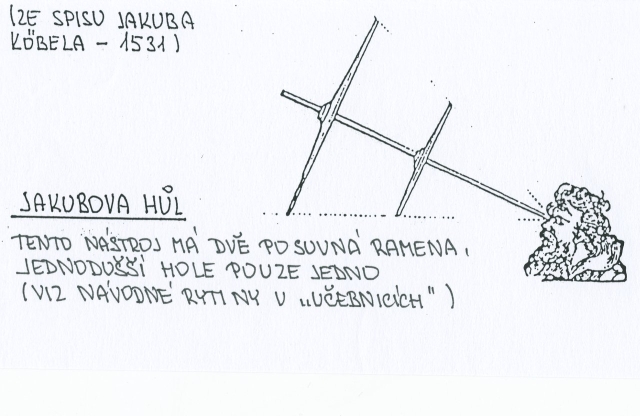 (ZE SPISU JAKUBA
KÖBELA - 1531)
JAKUBOVA HŮL
TENTO NÁSTROJ MÁ DVĚ POSUVNÁ RAMENA,
JEDNODUŠŠÍ HOLE POUZE JEDNO
(VIZ NÁVODNÉ RYTINY V „UČEBNICÍCH")